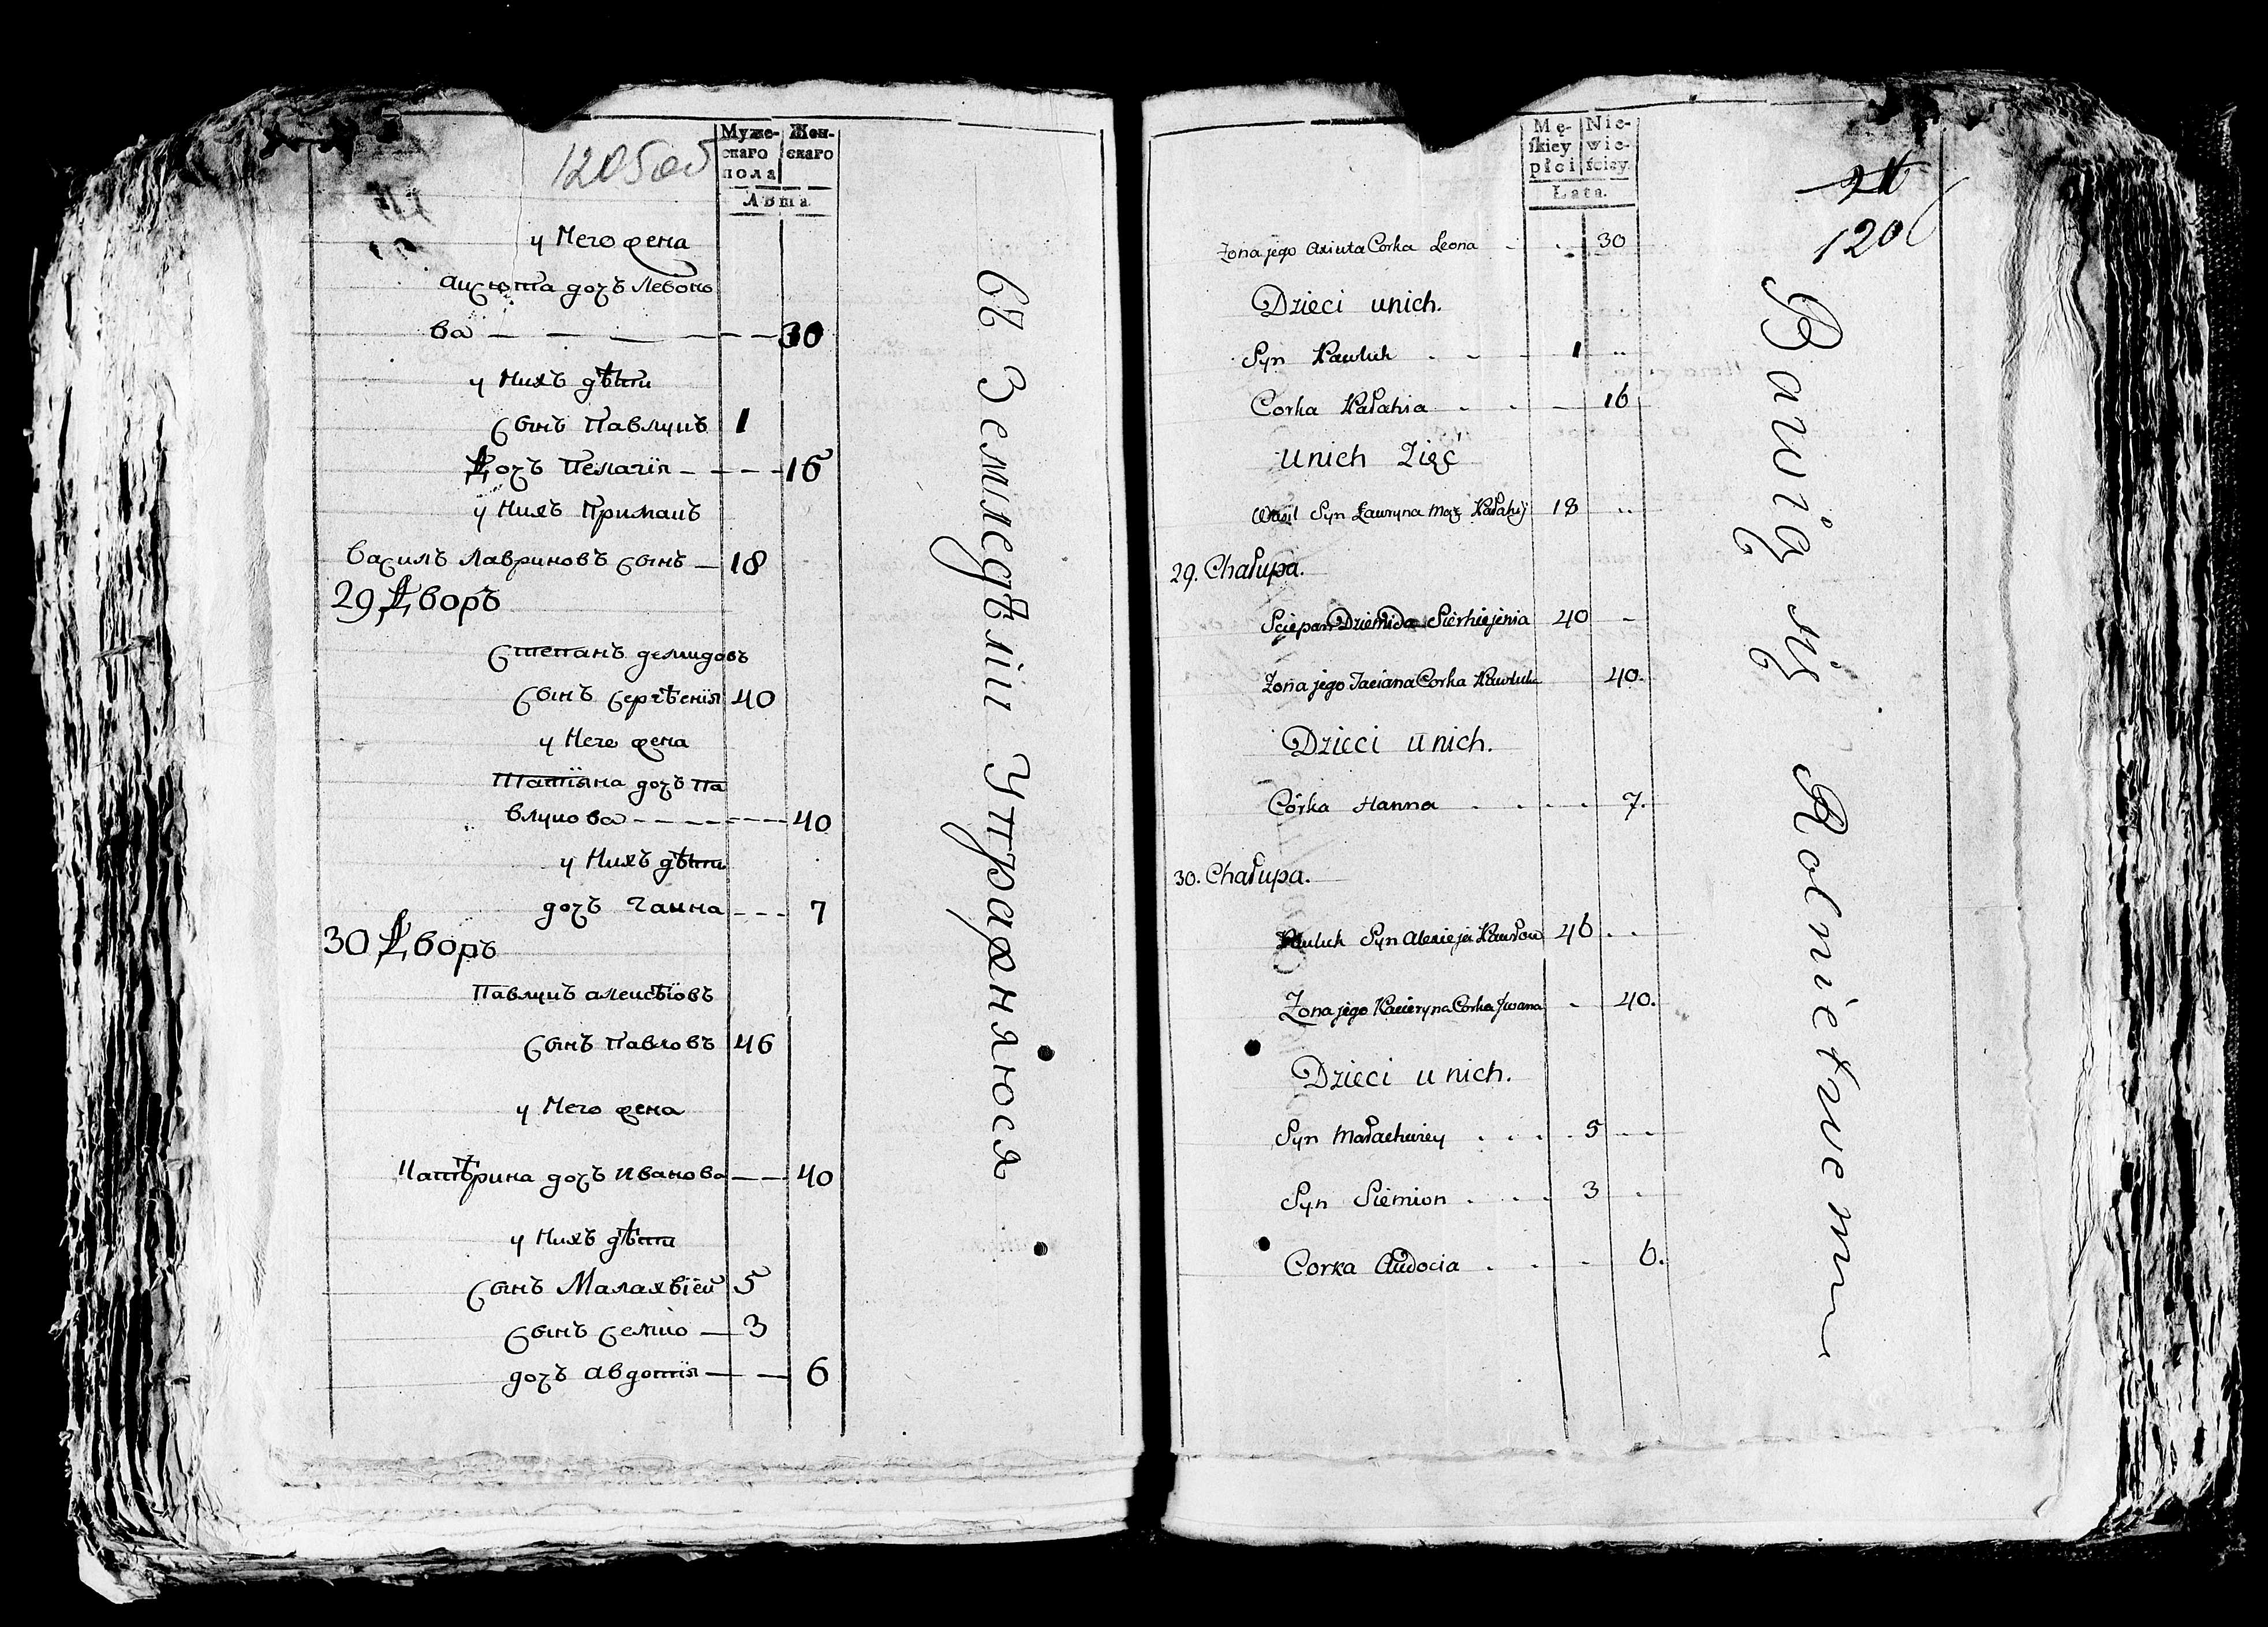 1205об
Муже-
скаго
пола
Жен-
скаго
Лѣта
у Него жена
аксюта дочъ Левоно
ва — — — — — 30
у Нихъ дѣти
Сынъ Павлукъ 1
Дочъ Пелагія — — — 16
у Нихъ Примакъ
Василъ Лавриновъ Сынъ — 18
29 Дворъ
Степанъ демидовъ
Сынъ Сергѣенія 40
у Него жена
Татіяна дочъ Па
влукова — — — — 40
у Нихъ дѣти
дочъ Ганна — — — 7
30 Дворъ
Павлукъ алексѣіовъ
Сынъ Павловъ 46
у Него жена
Катѣрина дочъ Иванова — — 40
у Нихъ дѣти
Сынъ Малахвіей 5
Сынъ Семіо — 3
дочъ авдотія — — 6
въ Земледѣліи Упражняюся
Mę-
skiey
płci
Nie-
wie-
ściey.
Łata.
Zona jego Axiuta Corka Leona - - 30
Dzieci unich.
Syn Pawluk . - - 1 ..
Corka Pałahia . . - 16
Unich Zięć
Wasil Syn Ławryna Mąz Pałahij 18 ..
29. Chałupa.
Sciepan Dziemida Sierhiejenia 40 -
Zona jego Taciana Corka Pawluka 40.
Dzieci unich.
Córka Hanna . . . . 7.
30. Chałupa.
Pauluk Syn Alexieja Pawłow 46 . .
Zona jego Kacieryna Corka Jwana - 40.
Dzieci unich.
Syn Małachwiey . . . . 5 - -
Syn Siemion . . . 3 .
Corka Audocia . . - 6.
120
Bawią się Rolnictwem